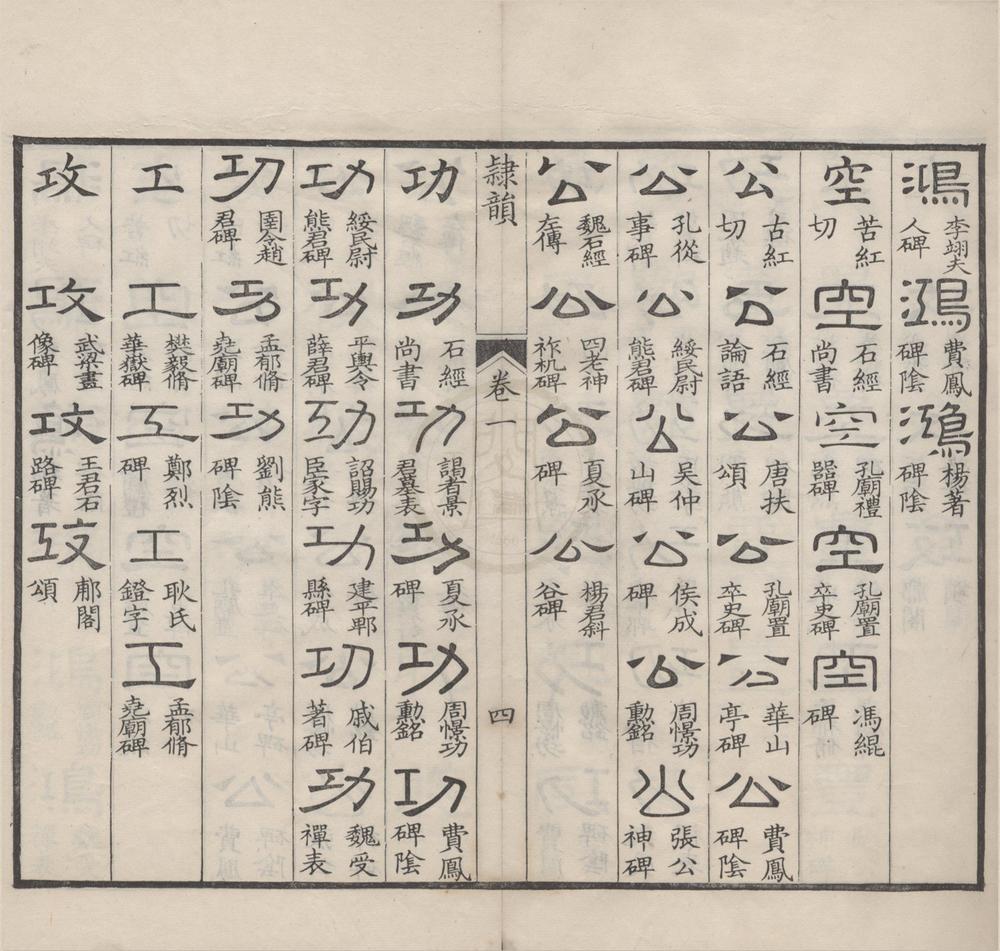 鴻 李翊夫人碑 鴻 費鳳碑陰 鴻 楊著碑陰
空 苦紅切 空 石經尚書 空 孔廟禮器碑 空 孔廟置卒史碑 空 馮緄碑
公 古紅切 公 石經論語 公 唐扶頌 公 孔廟置卒史碑 公 華山亭碑 公 費鳳碑陰
公 孔從事碑 公 綏民尉熊君碑 公 吳仲山碑 公 侯成碑 公 周憬功勳銘 公 張公神碑
公 魏石經左傳 公 四老神祚机碑 公 夏承碑 公 楊君斜谷碑
隷韻 卷一 四
功 功 石經尚書 功 謁者景君墓表 功 夏承碑 功 周憬功勳銘 功 費鳳碑陰
功 綏民尉熊君碑 功 平輿令薛君碑 功 詔賜功臣家字 功 建平郫縣碑 功 戚伯著碑 功 魏受禪表
功 圉令趙君碑 功 孟郁脩堯廟碑 功 劉熊碑陰
工 工 樊毅脩華嶽碑 工 鄭烈碑 工 耿氏鐙字 工 孟郁脩堯廟碑
攻 攻 武梁畫像碑 攻 王君石路碑 攻 郙閣頌